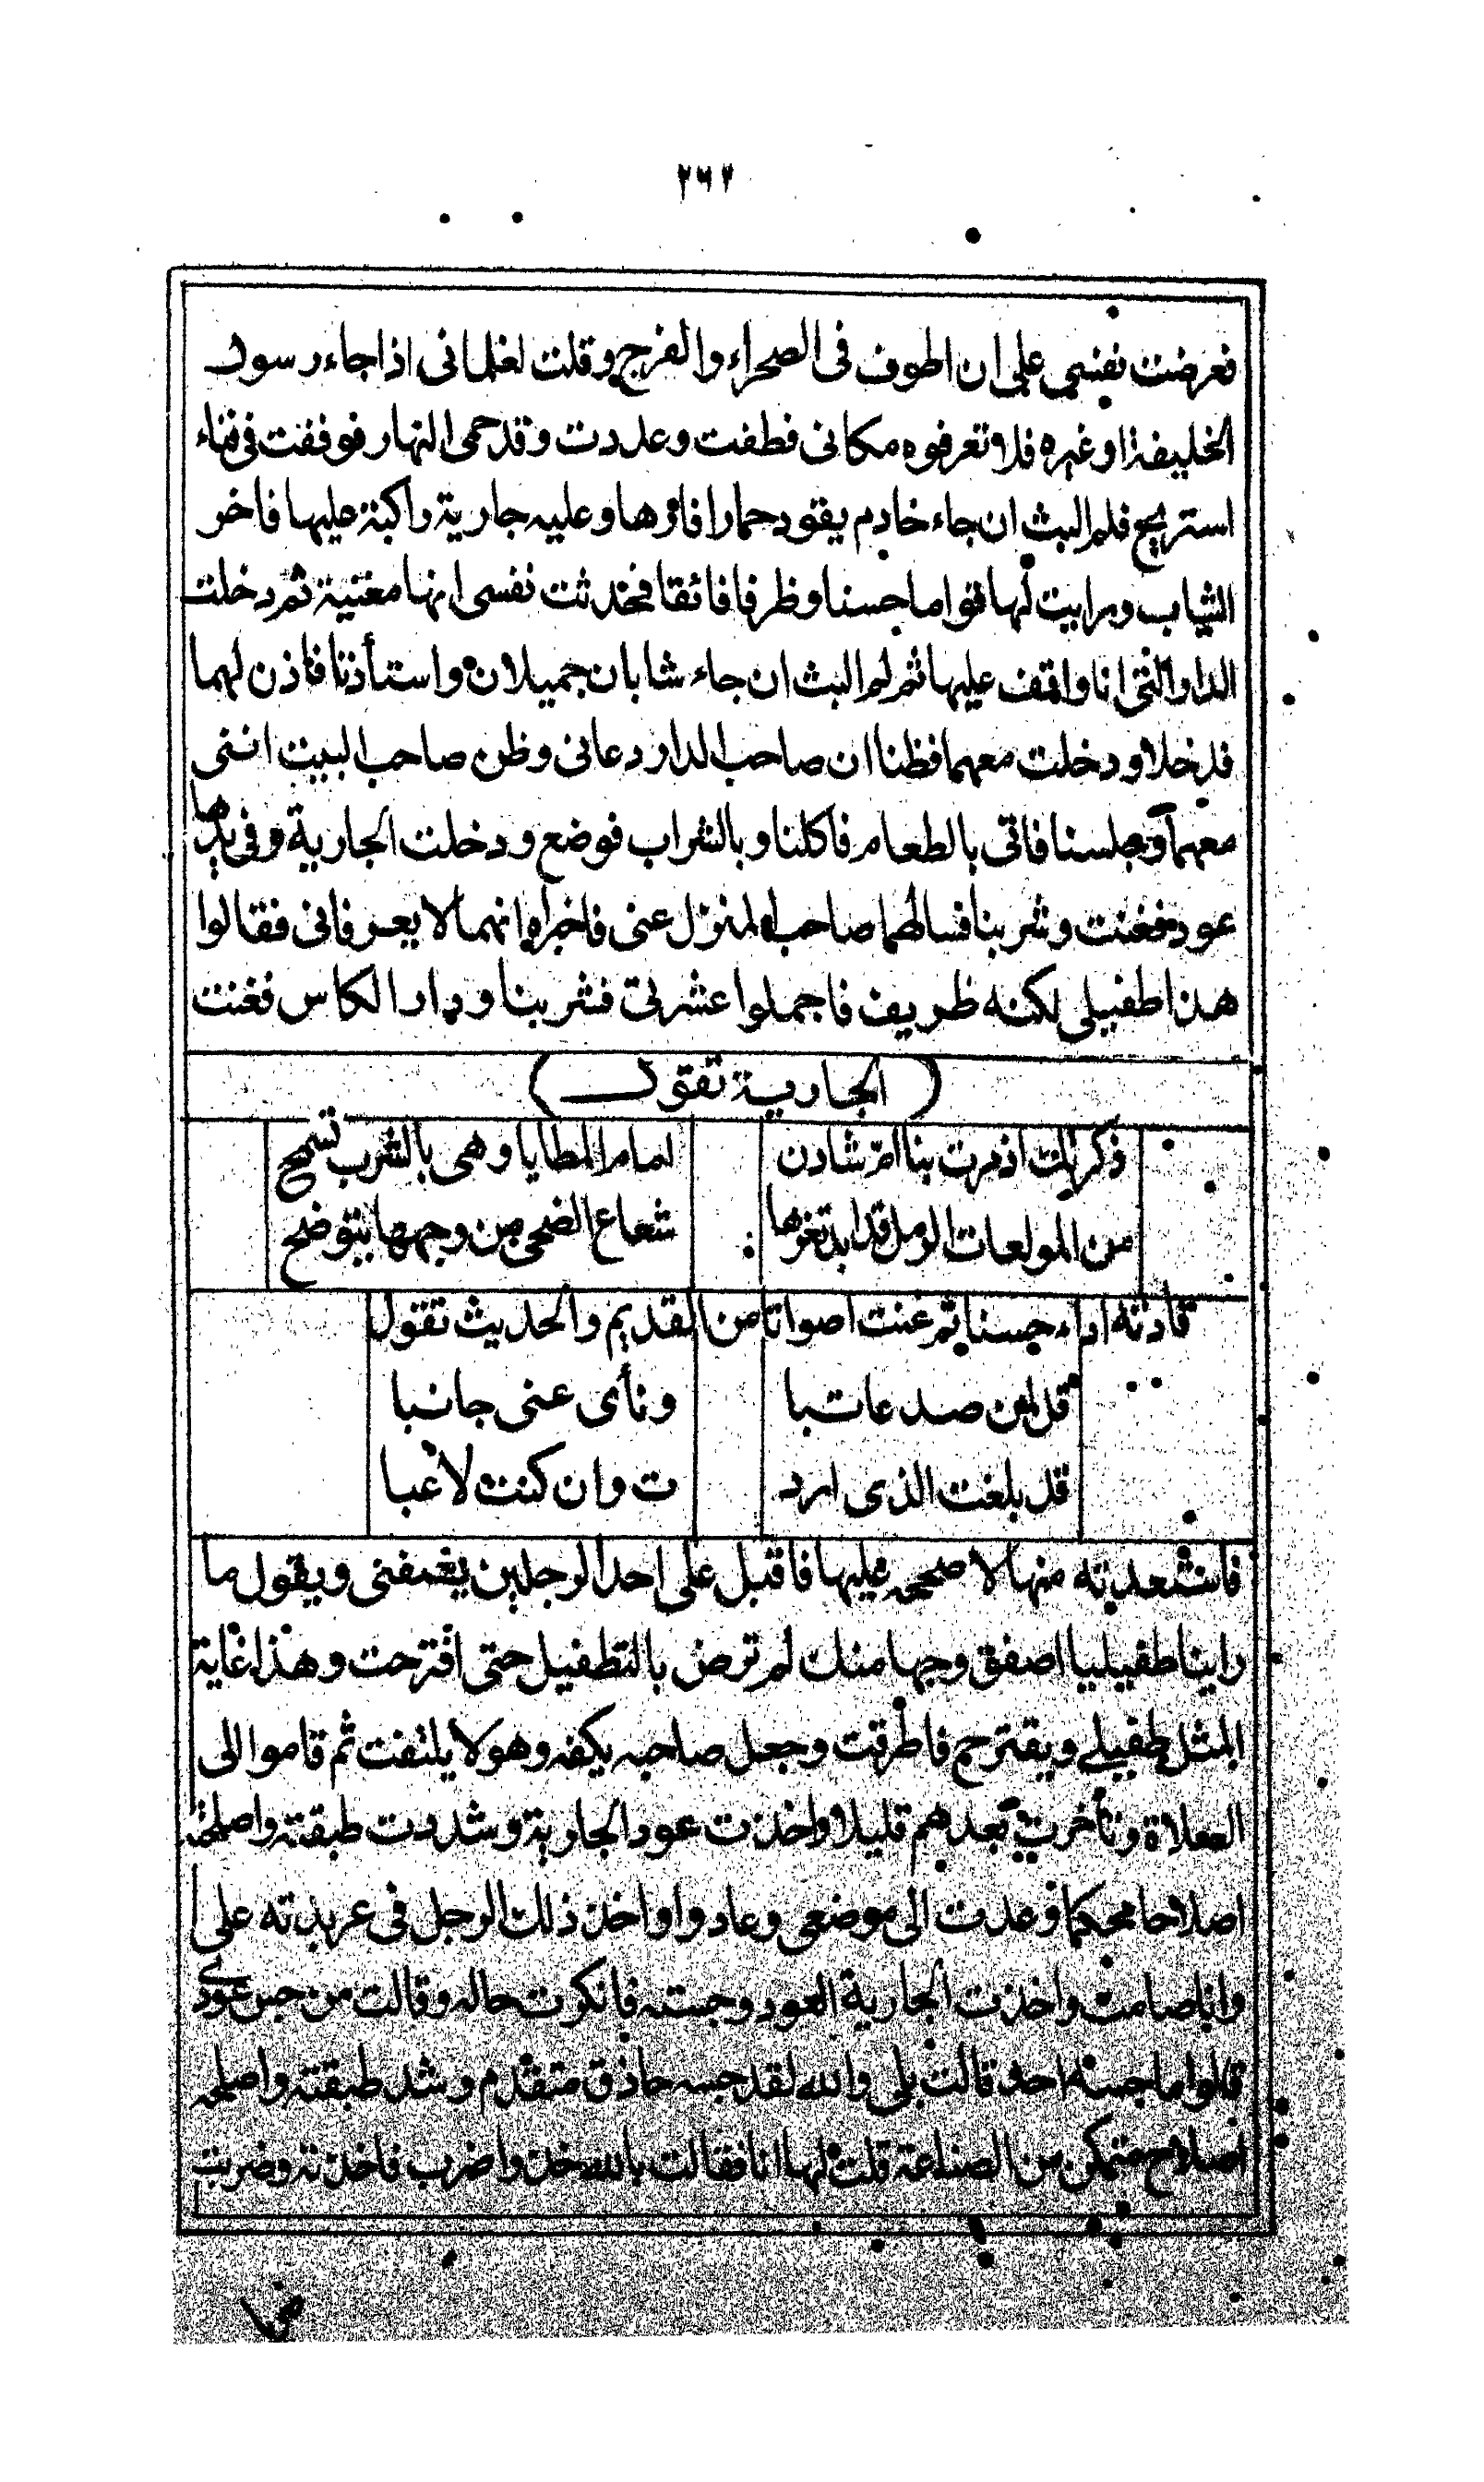 ٢٦٢
فعرضت نفسى على ان اطوف فى الصحراء والفرج وقلت لغلمانى اذا جاء رسول
الخليفة او غيره فلا تعرفوه مكانى فطفت وعددت وقد حمى النهار فوقفت فى فناء
استريح فلم البث ان جاء خادم يقود حمارا فارها وعليه جارية راكبة عليها فاخر
الثياب ورايت لها قواما حسنا وظرفا فائقا فحدثت نفسى انها مغنية ثم دخلت
الدار التى انا واقف عليها ثم لم البث ان جاء شابان جميلان واستأذنا فاذن لهما
فدخلا ودخلت معهما فظنا ان صاحب الدار دعانى وظن صاحب البيت اننى
معهما وجلسنا فاتى بالطعام فاكلنا وبالشراب فوضع ودخلت الجارية وفى يدها
عود فغنت وشربنا فسالهما صاحب المنزل عنى فاخبراه انهما لا يعرفانى فقالوا
هذا طفيلى لكنه ظريف فاجملوا عشرتى فشربنا ودار الكاس فغنت
(الجارية تقول)
ذكرتك اذ مرت بنا ام شادن
امام المطايا وهى بالشرب تسمح
من المولعات الرمل قد ابد ثغرها
شعاع الضحى من وجهها يتوضح
فادته اداء حسنا ثم غنت اصواتا من القديم والحديث تقول
قل لمن صد عاتبا
ونأى عنى جانبا
قد بلغت الذى ارد
ت وان كنت لاعبا
فاستعدته منها لاصححه عليها فاقبل على احد الرجلين يغمفنى ويقول ما
راينا طفيليا اصفق وجها منك لم ترض بالتطفيل حتى اقترحت وهذا غاية
المثل طفيلى ويقترح فاطرقت وجعل صاحبه يكفه وهو لا يلتفت ثم قاموا الى
الصلاة وتأخرت بعدهم قليلا واخذت عود الجارية وشددت طبقته واصلحته
اصلاحا محكما وعدت الى موضعى وعادوا واخذ ذلك الرجل فى عربدته على
وانا صامت واخذت الجارية العود وجسته فانكرت حاله وقالت من جس عودى
قالوا ما جسه احد قالت بلى والله لقد جسه حاذق متقدم وشد طبقته واصلحه
اصلاح متمكن من الصناعة قلت لها انا فقالت بالله خذ واضرب فاخذته وضربت